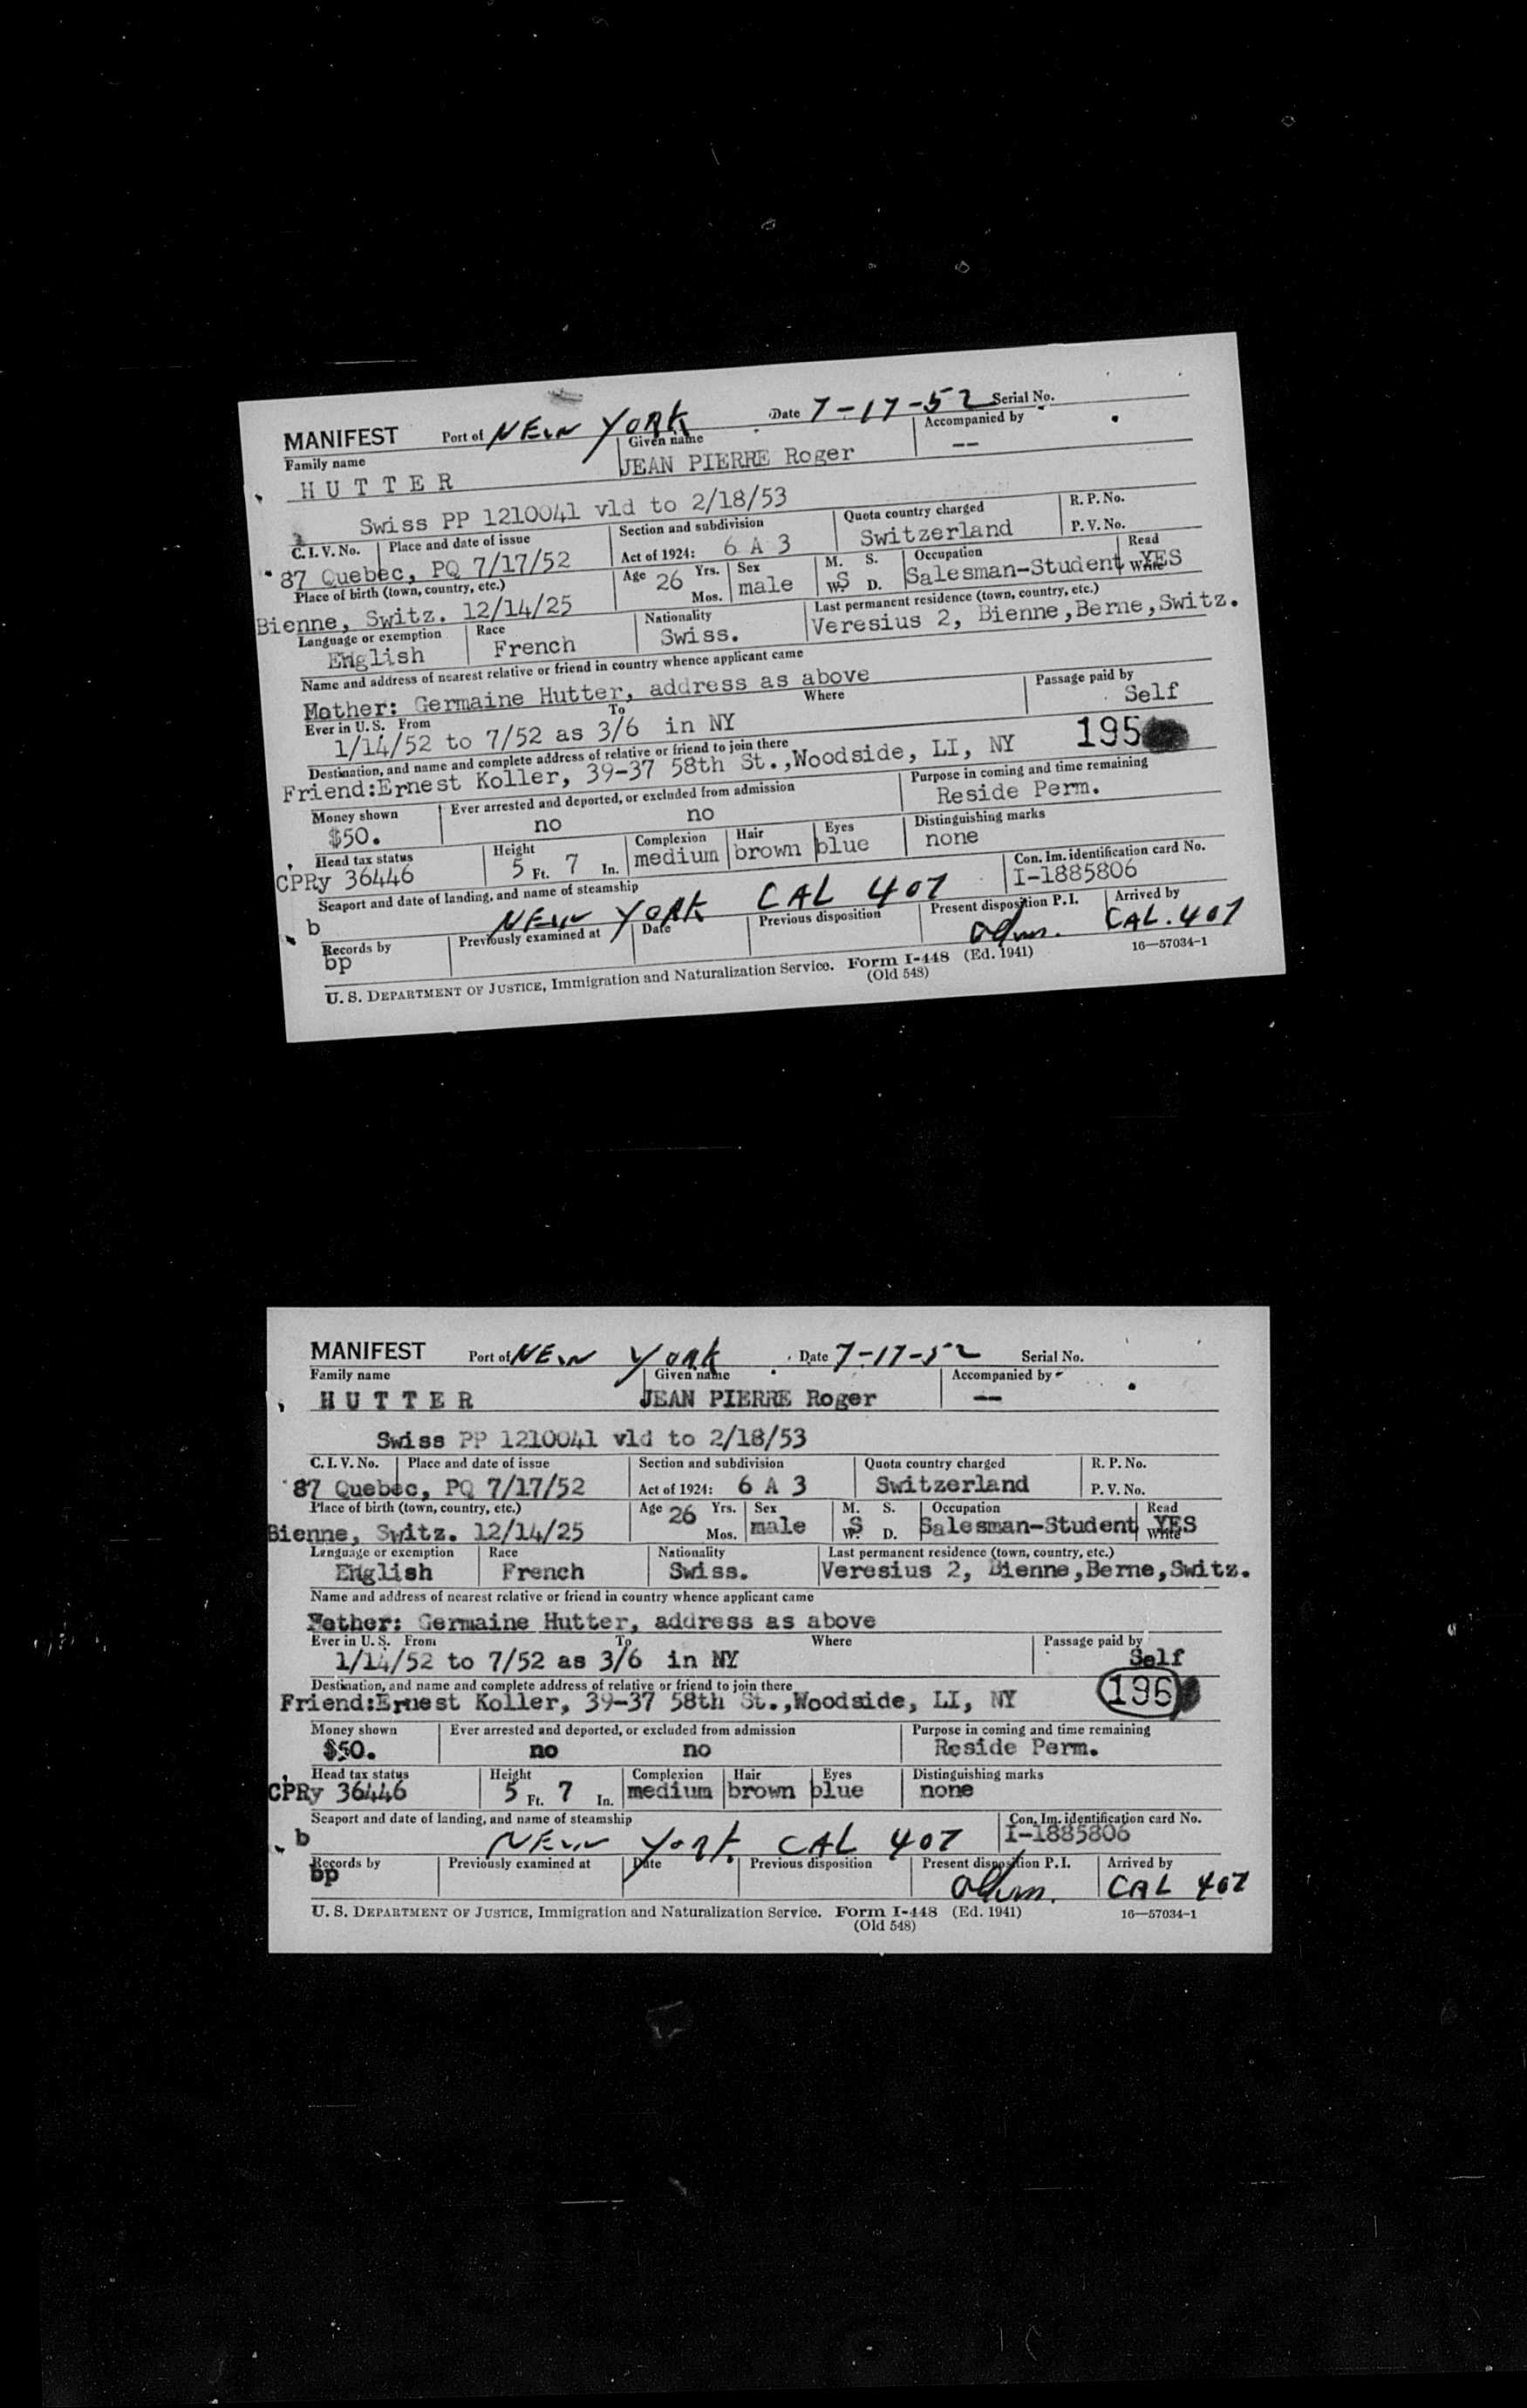 MANIFEST Port of NEW YORK Date 7-17-52 Serial No.
Family name Given name Accompanied by
HUTTER JEAN PIERRE Roger --
Swiss PP 1210041 vld to 2/18/53
C. I. V. No. Place and date of issue Section and subdivision Quota country charged R. P. No.
87 Quebec, PQ 7/17/52 Act of 1924: 6 A 3 Switzerland P. V. No.
Place of birth (town, country, etc.) Age 26 Yrs. Sex M. S. Occupation Read
Bienne, Switz. 12/14/25 Mos. male W. S D. Salesman-Student Write YES
Language or exemption Race Nationality Last permanent residence (town, country, etc.)
English French Swiss. Veresius 2, Bienne,Berne,Switz.
Name and address of nearest relative or friend in country whence applicant came
Mother: Germaine Hutter, address as above
Ever in U. S. From To Where Passage paid by
1/14/52 to 7/52 as 3/6 in NY Self
Destination, and name and complete address of relative or friend to join there 195
Friend:Ernest Koller, 39-37 58th St.,Woodside, LI, NY
Money shown Ever arrested and deported, or excluded from admission Purpose in coming and time remaining
$50. no no Reside Perm.
Head tax status Height Complexion Hair Eyes Distinguishing marks
CPRy 36446 5 Ft. 7 In. medium brown blue none
Seaport and date of landing, and name of steamship Con. Im. identification card No.
b NEW YORK CAL 407 I-1885806
Records by Previously examined at Date Previous disposition Present disposition P. I. Arrived by
bp Adm. CAL. 407
U. S. DEPARTMENT OF JUSTICE, Immigration and Naturalization Service. Form I-448 (Ed. 1941) 16—57034-1
(Old 548)
MANIFEST Port of NEW York Date 7-17-52 Serial No.
Family name Given name Accompanied by
HUTTER JEAN PIERRE Roger --
Swiss PP 1210041 vld to 2/18/53
C. I. V. No. Place and date of issue Section and subdivision Quota country charged R. P. No.
87 Quebec, PQ 7/17/52 Act of 1924: 6 A 3 Switzerland P. V. No.
Place of birth (town, country, etc.) Age 26 Yrs. Sex M. S. Occupation Read
Bienne, Switz. 12/14/25 Mos. male W. S D. Salesman-Student Write YES
Language or exemption Race Nationality Last permanent residence (town, country, etc.)
English French Swiss. Veresius 2, Bienne,Berne,Switz.
Name and address of nearest relative or friend in country whence applicant came
Mother: Germaine Hutter, address as above
Ever in U. S. From To Where Passage paid by
1/14/52 to 7/52 as 3/6 in NY Self
Destination, and name and complete address of relative or friend to join there 196
Friend:Ernest Koller, 39-37 58th St.,Woodside, LI, NY
Money shown Ever arrested and deported, or excluded from admission Purpose in coming and time remaining
$50. no no Reside Perm.
Head tax status Height Complexion Hair Eyes Distinguishing marks
CPRy 36446 5 Ft. 7 In. medium brown blue none
Seaport and date of landing, and name of steamship Con. Im. identification card No.
b NEW York CAL 407 I-1885806
Records by Previously examined at Date Previous disposition Present disposition P. I. Arrived by
bp Adm. CAL 407
U. S. DEPARTMENT OF JUSTICE, Immigration and Naturalization Service. Form I-448 (Ed. 1941) 16—57034-1
(Old 548)